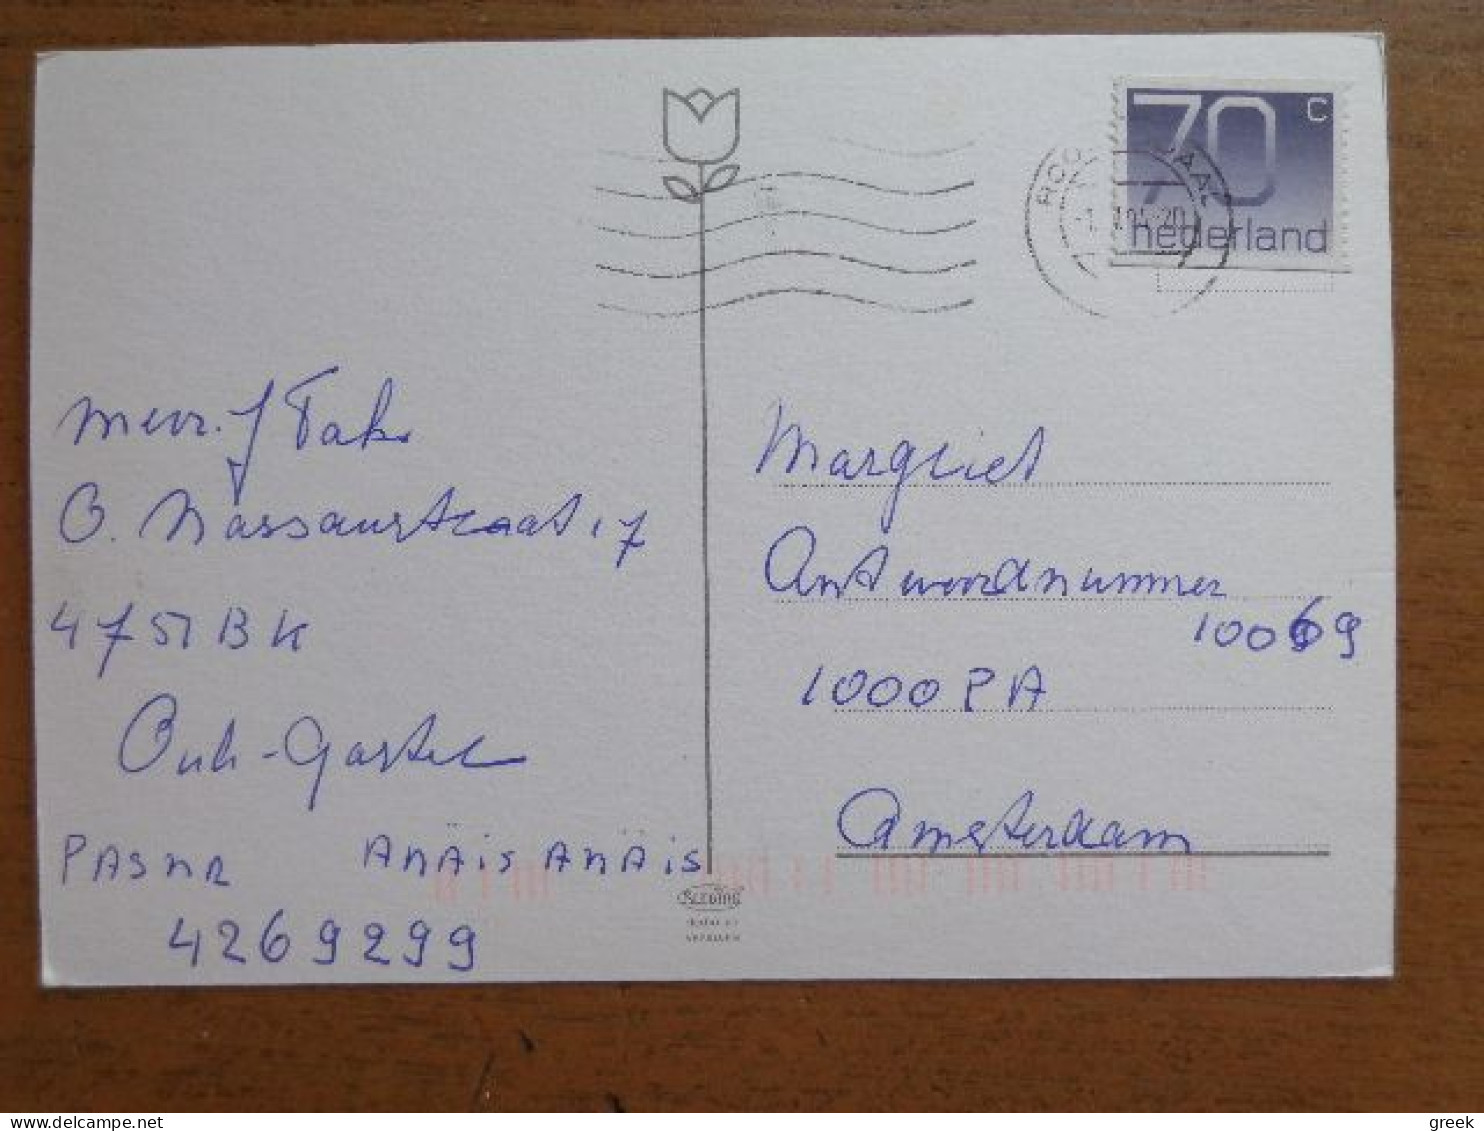 70 c
nederland
mevr. J Tak
O. Nassaustraat 17
4751 BK
Oud-Gastel
PASNR ANÄIS ANÄIS
4269299
Margriet
Antwoordnummer
10069
1000 PA
Amsterdam
greek